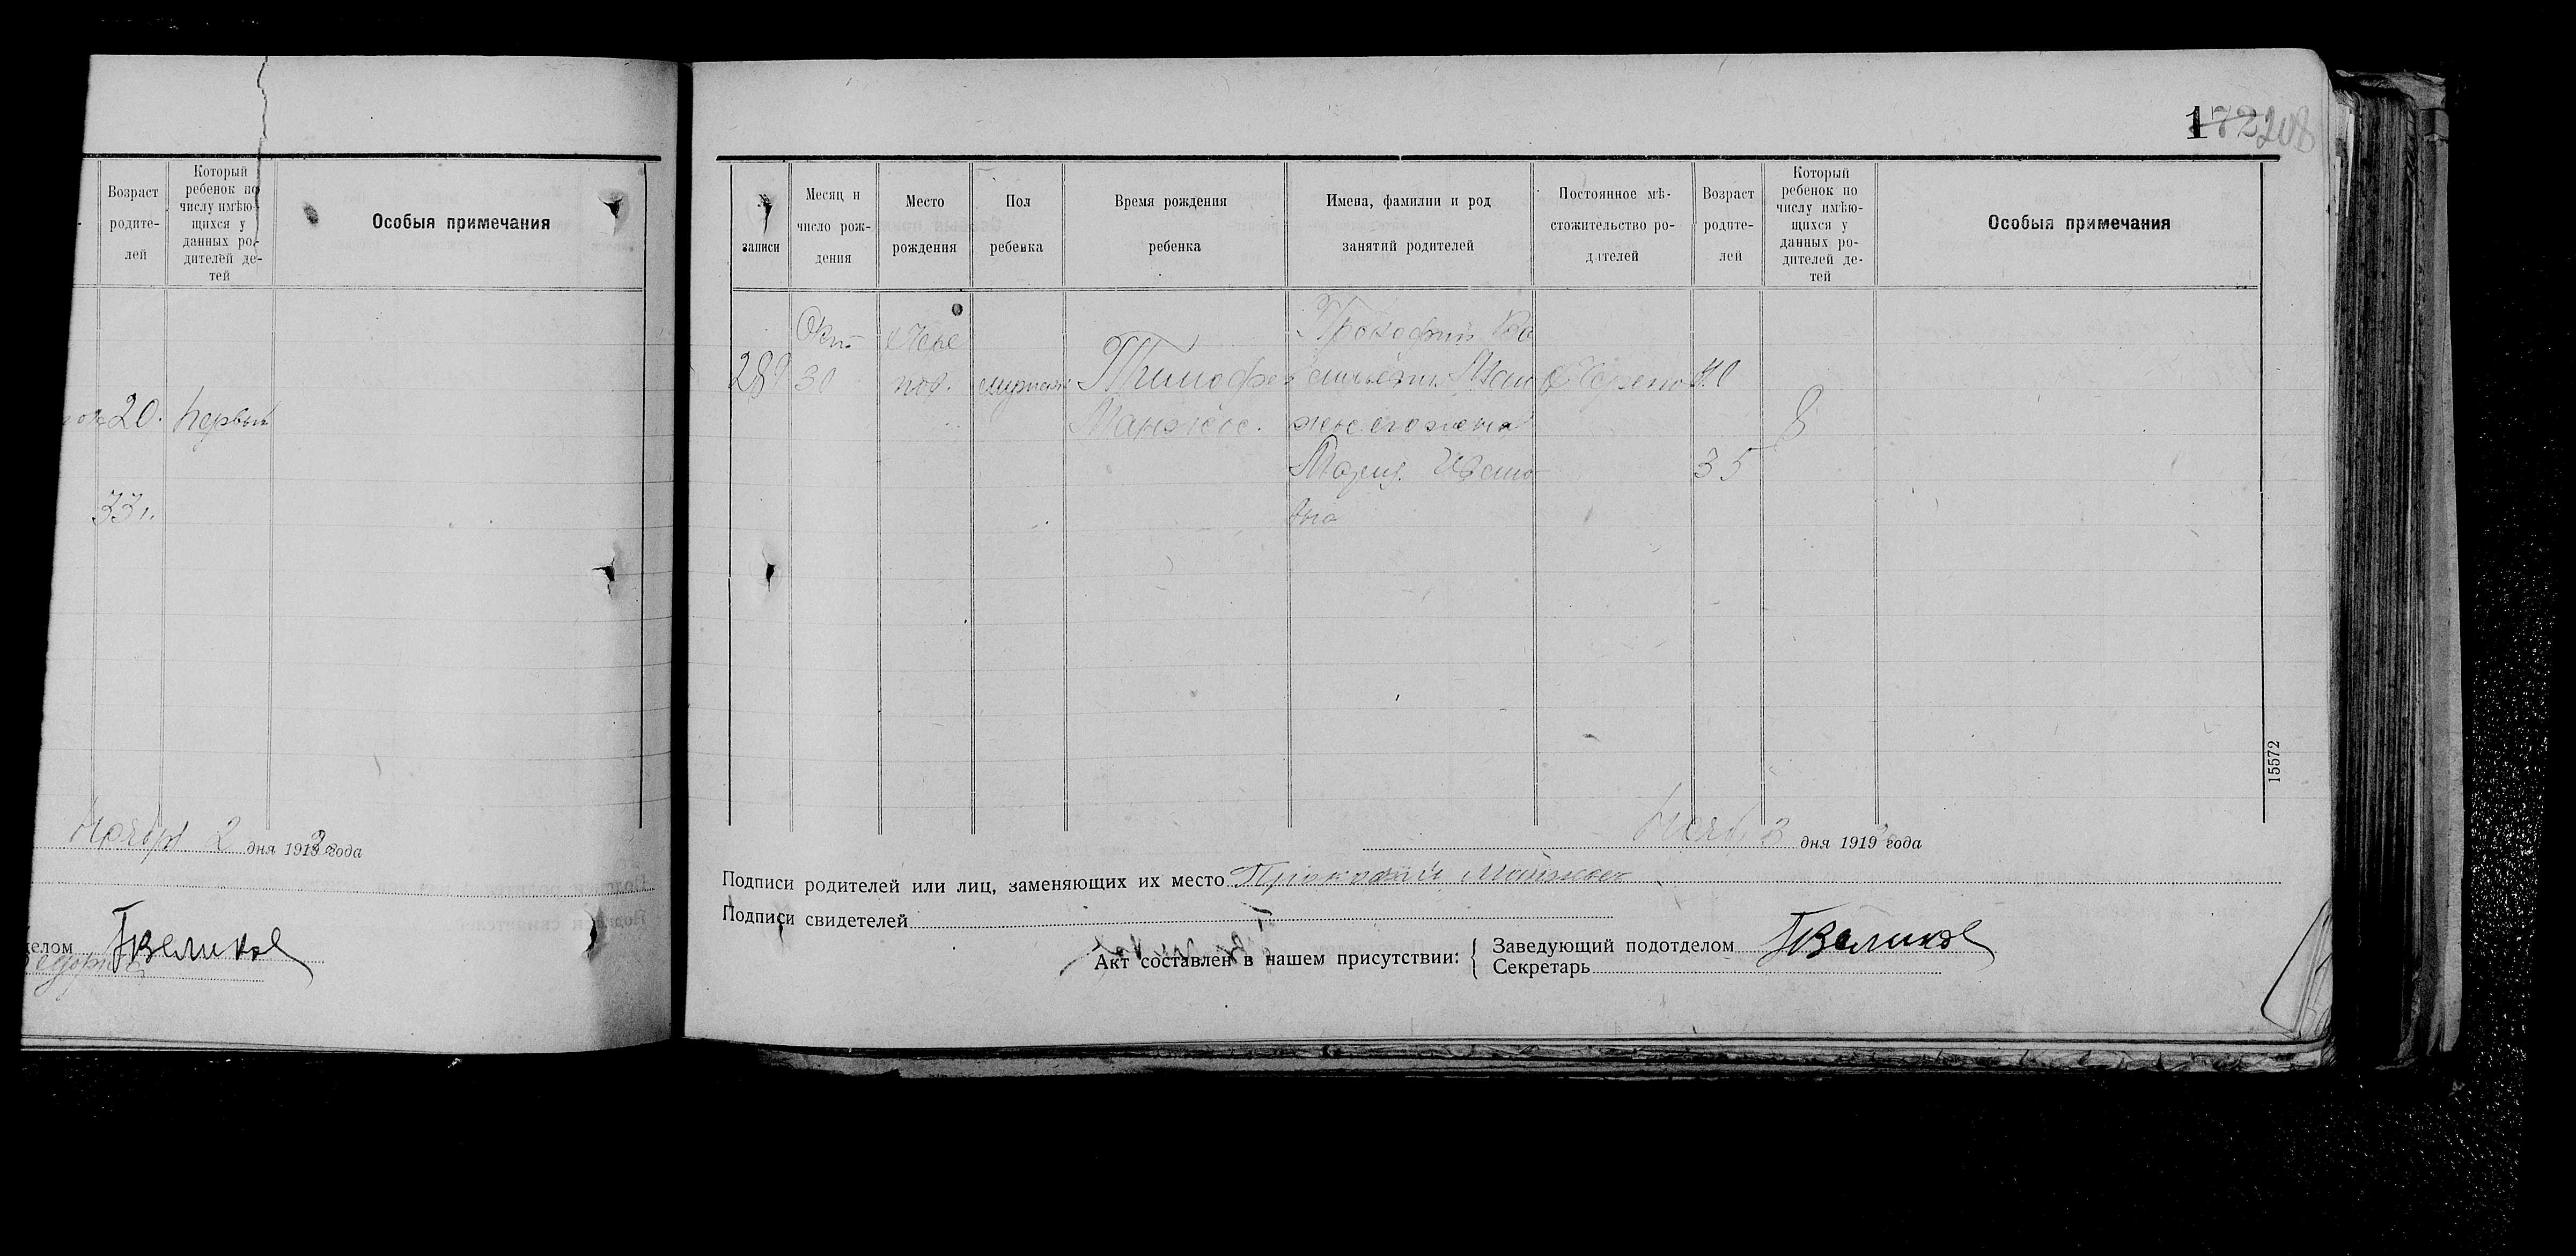 Возраст
родите-
лей
Который
ребенок по
числу имѣю-
щихся у
данных ро-
дителей де-
тей
Особыя примечания
20. первый
33 г.
Ноября 2 дня 1919 года
делом
ТВеликов
172 208
№
записи
Месяц и
число рож-
дения
Место
рождения
Пол
ребенка
Время рождения
ребенка
Имена, фамилии и род
занятий родителей
Постоянное мѣ-
стожительство ро-
дителей
Возраст
родите-
лей
Который
ребенок по
числу имѣю-
щихся у
данных ро-
дителей де-
тей
Особыя примечания
289
Окт.
30
Чере
пов.
мужской
Тимофей
Манжос.
Прокофий Ва
сильевич Ман
жос его жена
Мария Ивано
вна
40
35
8
15572
Нояб. 3 дня 1919 года
Подписи родителей или лиц, заменяющих их место Прокофий Манжос
Подписи свидетелей
Акт составлен в нашем присутствии:
Заведующий подотделом ТВеликов
Секретарь